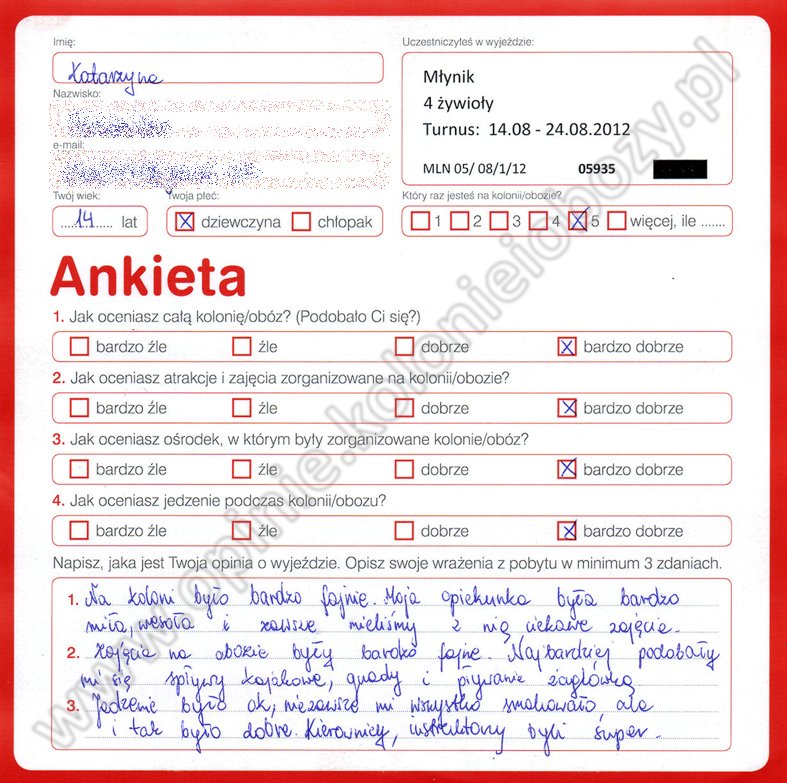 Imię:
Katarzyna
Nazwisko:
e-mail:
Twój wiek:
14 lat
Twoja płeć:
dziewczyna chłopak
Uczestniczyłeś w wyjeździe:
Młynik
4 żywioły
Turnus: 14.08 - 24.08.2012
MLN 05/ 08/1/12 05935
Który raz jesteś na kolonii/obozie?
1 2 3 4 5 więcej, ile .......
Ankieta
1. Jak oceniasz całą kolonię/obóz? (Podobało Ci się?)
bardzo źle źle dobrze bardzo dobrze
2. Jak oceniasz atrakcje i zajęcia zorganizowane na kolonii/obozie?
bardzo źle źle dobrze bardzo dobrze
3. Jak oceniasz ośrodek, w którym były zorganizowane kolonie/obóz?
bardzo źle źle dobrze bardzo dobrze
4. Jak oceniasz jedzenie podczas kolonii/obozu?
bardzo źle źle dobrze bardzo dobrze
Napisz, jaka jest Twoja opinia o wyjeździe. Opisz swoje wrażenia z pobytu w minimum 3 zdaniach.
1. Na koloni było bardzo fajnie. Moja opiekunka była bardzo
miła, wesoła i zawsze mieliśmy z nią ciekawe zajęcia.
2. Zajęcia na obozie były bardzo fajne. Najbardziej podobały
mi się spływy kajakowe, quady i pływanie żaglówką
3. Jedzenie było ok, niezawsze mi wszystko smakowało ale
i tak było dobre. Kierownicy, instruktorzy byli super.
www.opinie.kolonieiobozy.pl